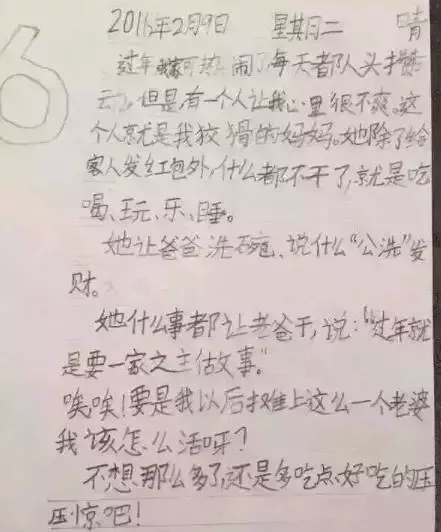 6
2016年2月9日 星期二 晴
过年我家可热闹了每天都队头攒
动。但是,有一个人让我心里很不爽。这
个人就是我狡猾的妈妈。她除了给
客人发红包外,什么都不干了,就是吃
喝、玩、乐、睡。
她让爸爸洗碗、说什么“公洗”发
财。
她什么事都让老爸干,说:“过年就
是要一家之主做事。”
唉唉!要是我以后摊上这么一个老婆
我该怎么活呀?
不想那么多了,还是多吃点好吃的压
压惊吧!